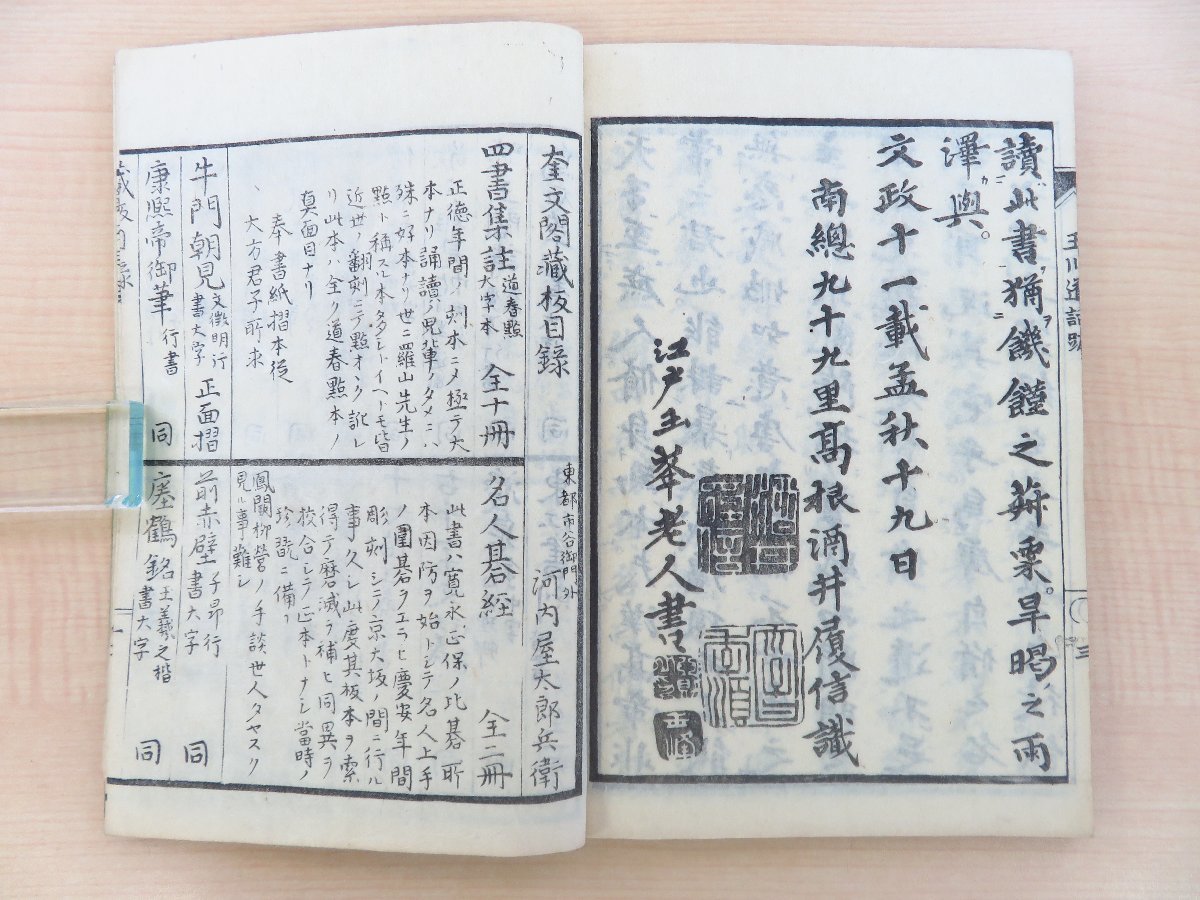 讀此書猶饑饉之菽粟。旱暍之雨
澤與。
文政十一載孟秋十九日
南總九十九里高根酒井履信識
江戸玉峯老人書
奎文閣藏板目錄
東都市谷御門外
河内屋太郎兵衛
四書集註 道春點
大字本 全十冊
正德年間ノ刻本ニメ極テ大
本ナリ誦讀ノ児輩ノタメニハ
殊ニ好本ナリ世ニ羅山先生ノ
點ト稱スル本タ多シトイヘトモ皆
近世ノ翻刻ニテ點オホク訛レ
リ此本ハ全ク道春點本ノ
真面目ナリ
奉書紙摺本従
大方君子所求
牛門朝見 文徵明行
書大字 正面摺
康熙帝御筆 行書 同
藏板目錄
名人碁經 全二冊
此書ハ寛永正保ノ比碁所
本因防ヲ始トシテ名人上手
ノ圍碁ヲエラヒ慶安年間
彫刻シテ京大坂ノ間ニ行ル
事久シ此度其板本ヲ索
得テ磨滅ヲ補ヒ同異ヲ
校合シテ正本トナシ當時ノ
珍翫ニ備フ
鳳闕柳營ノ手談世人タヤスク
見ル事難シ
前赤壁 子昂行
書大字 同
瘞鶴銘 王羲之楷
書大字 同